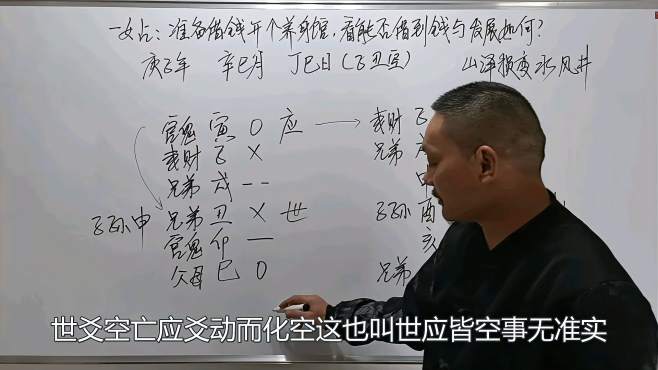 一女占：准备借钱开个养身馆，看能否借到钱与发展如何？
庚子年 辛巳月 丁巳日（子丑空） 山泽损变水风井
官鬼 寅 O 应 → 妻财 子
妻财 子 X 兄弟 戌
兄弟 戌 -- 申
子孙申 兄弟 丑 X 世 子孙 酉
官鬼 卯 — 亥
父母 巳 O 兄弟
世爻空亡应爻动而化空这也叫世应皆空事无准实